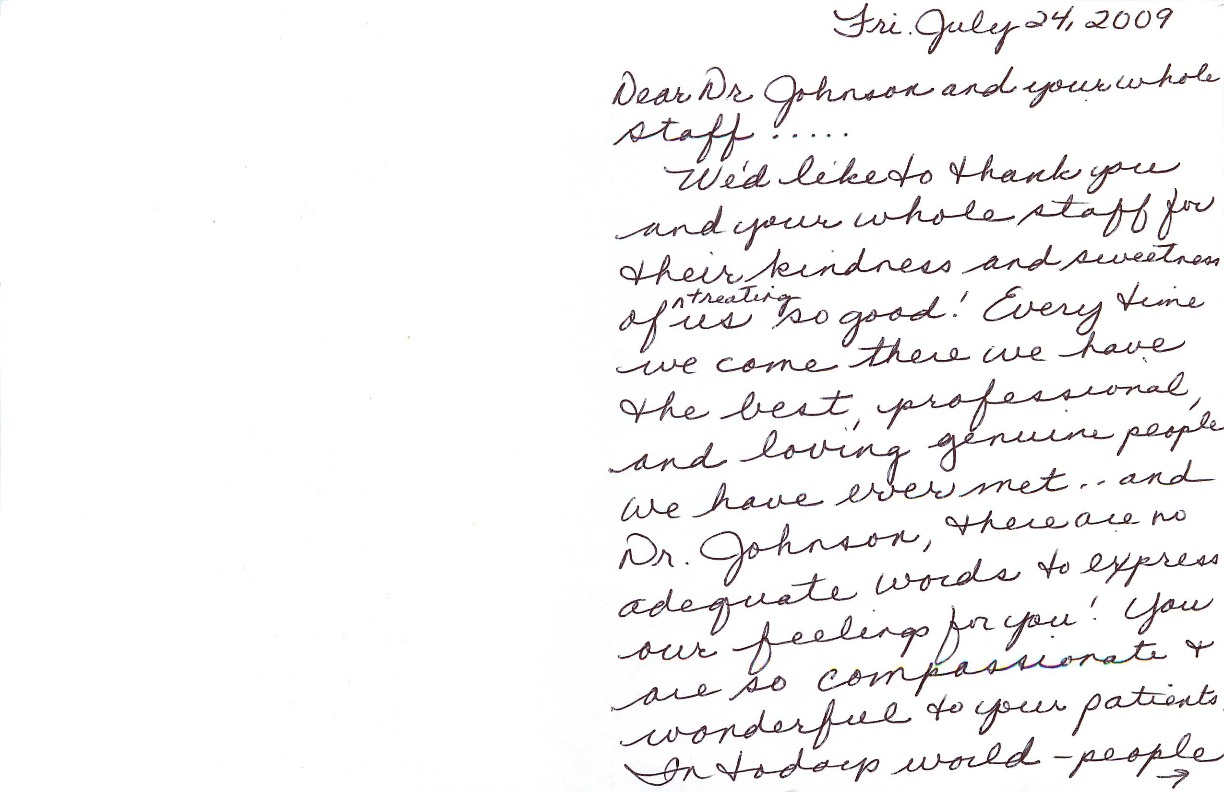 Fri. July 24, 2009
Dear Dr Johnson and your whole
staff .....
We'd like to thank you
and your whole staff for
their kindness and sweetness
of ^treating us so good! Every time
we come there we have
the best, professional,
and loving genuine people
we have ever met .. and
Dr. Johnson, there are no
adequate words to express
our feelings for you! You
are so compassionate &
wonderful to your patients.
In todays world - people
→